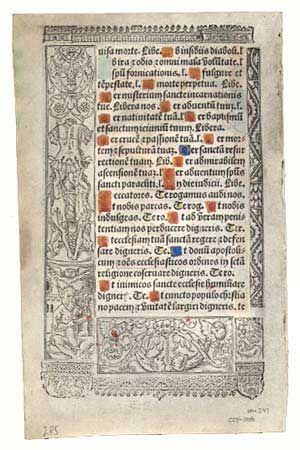 uisa morte. Libe. b insidiis diaboli. l
b ira & odio & omni mala volūtate. l
spū fornicationis. l. fulgure et
tēpestate. l. morte perpetua. Libe.
er misterium sancte incarnationis
tue. Libera nos. er aduentū tuuʒ. l
er natiuitatē tuā. l. er baptismū
et sanctum ieiuniū tuum. Libera.
er crucē & passionē tuā. l. er mor-
tem & sepulturā tuaʒ. er sanctā resur
rectionē tuam. Lib. er admirabilem
ascensionē tuaʒ. l. er aduentum spūs
sancti paracliti. l. n die iudicii. Libe.
eccatores. Te rogamus audi nos.
t nobis parcas. Te rog. t nobis
indulgeas. Te ro. t ad verā peni
tentiam nos perducere digneris. Te
t ecclesiam tuā sanctā regere & defen
sare digneris. Te. t donū apostoli
cum & oēs ecclesiasticos ordines in sctā
religione cōseruare digneris. Te ro.
t inimicos sancte ecclesie humiliare
digneris. Te. t cuncto populo christia
no pacem & vnitatē largiri digneris. te
285